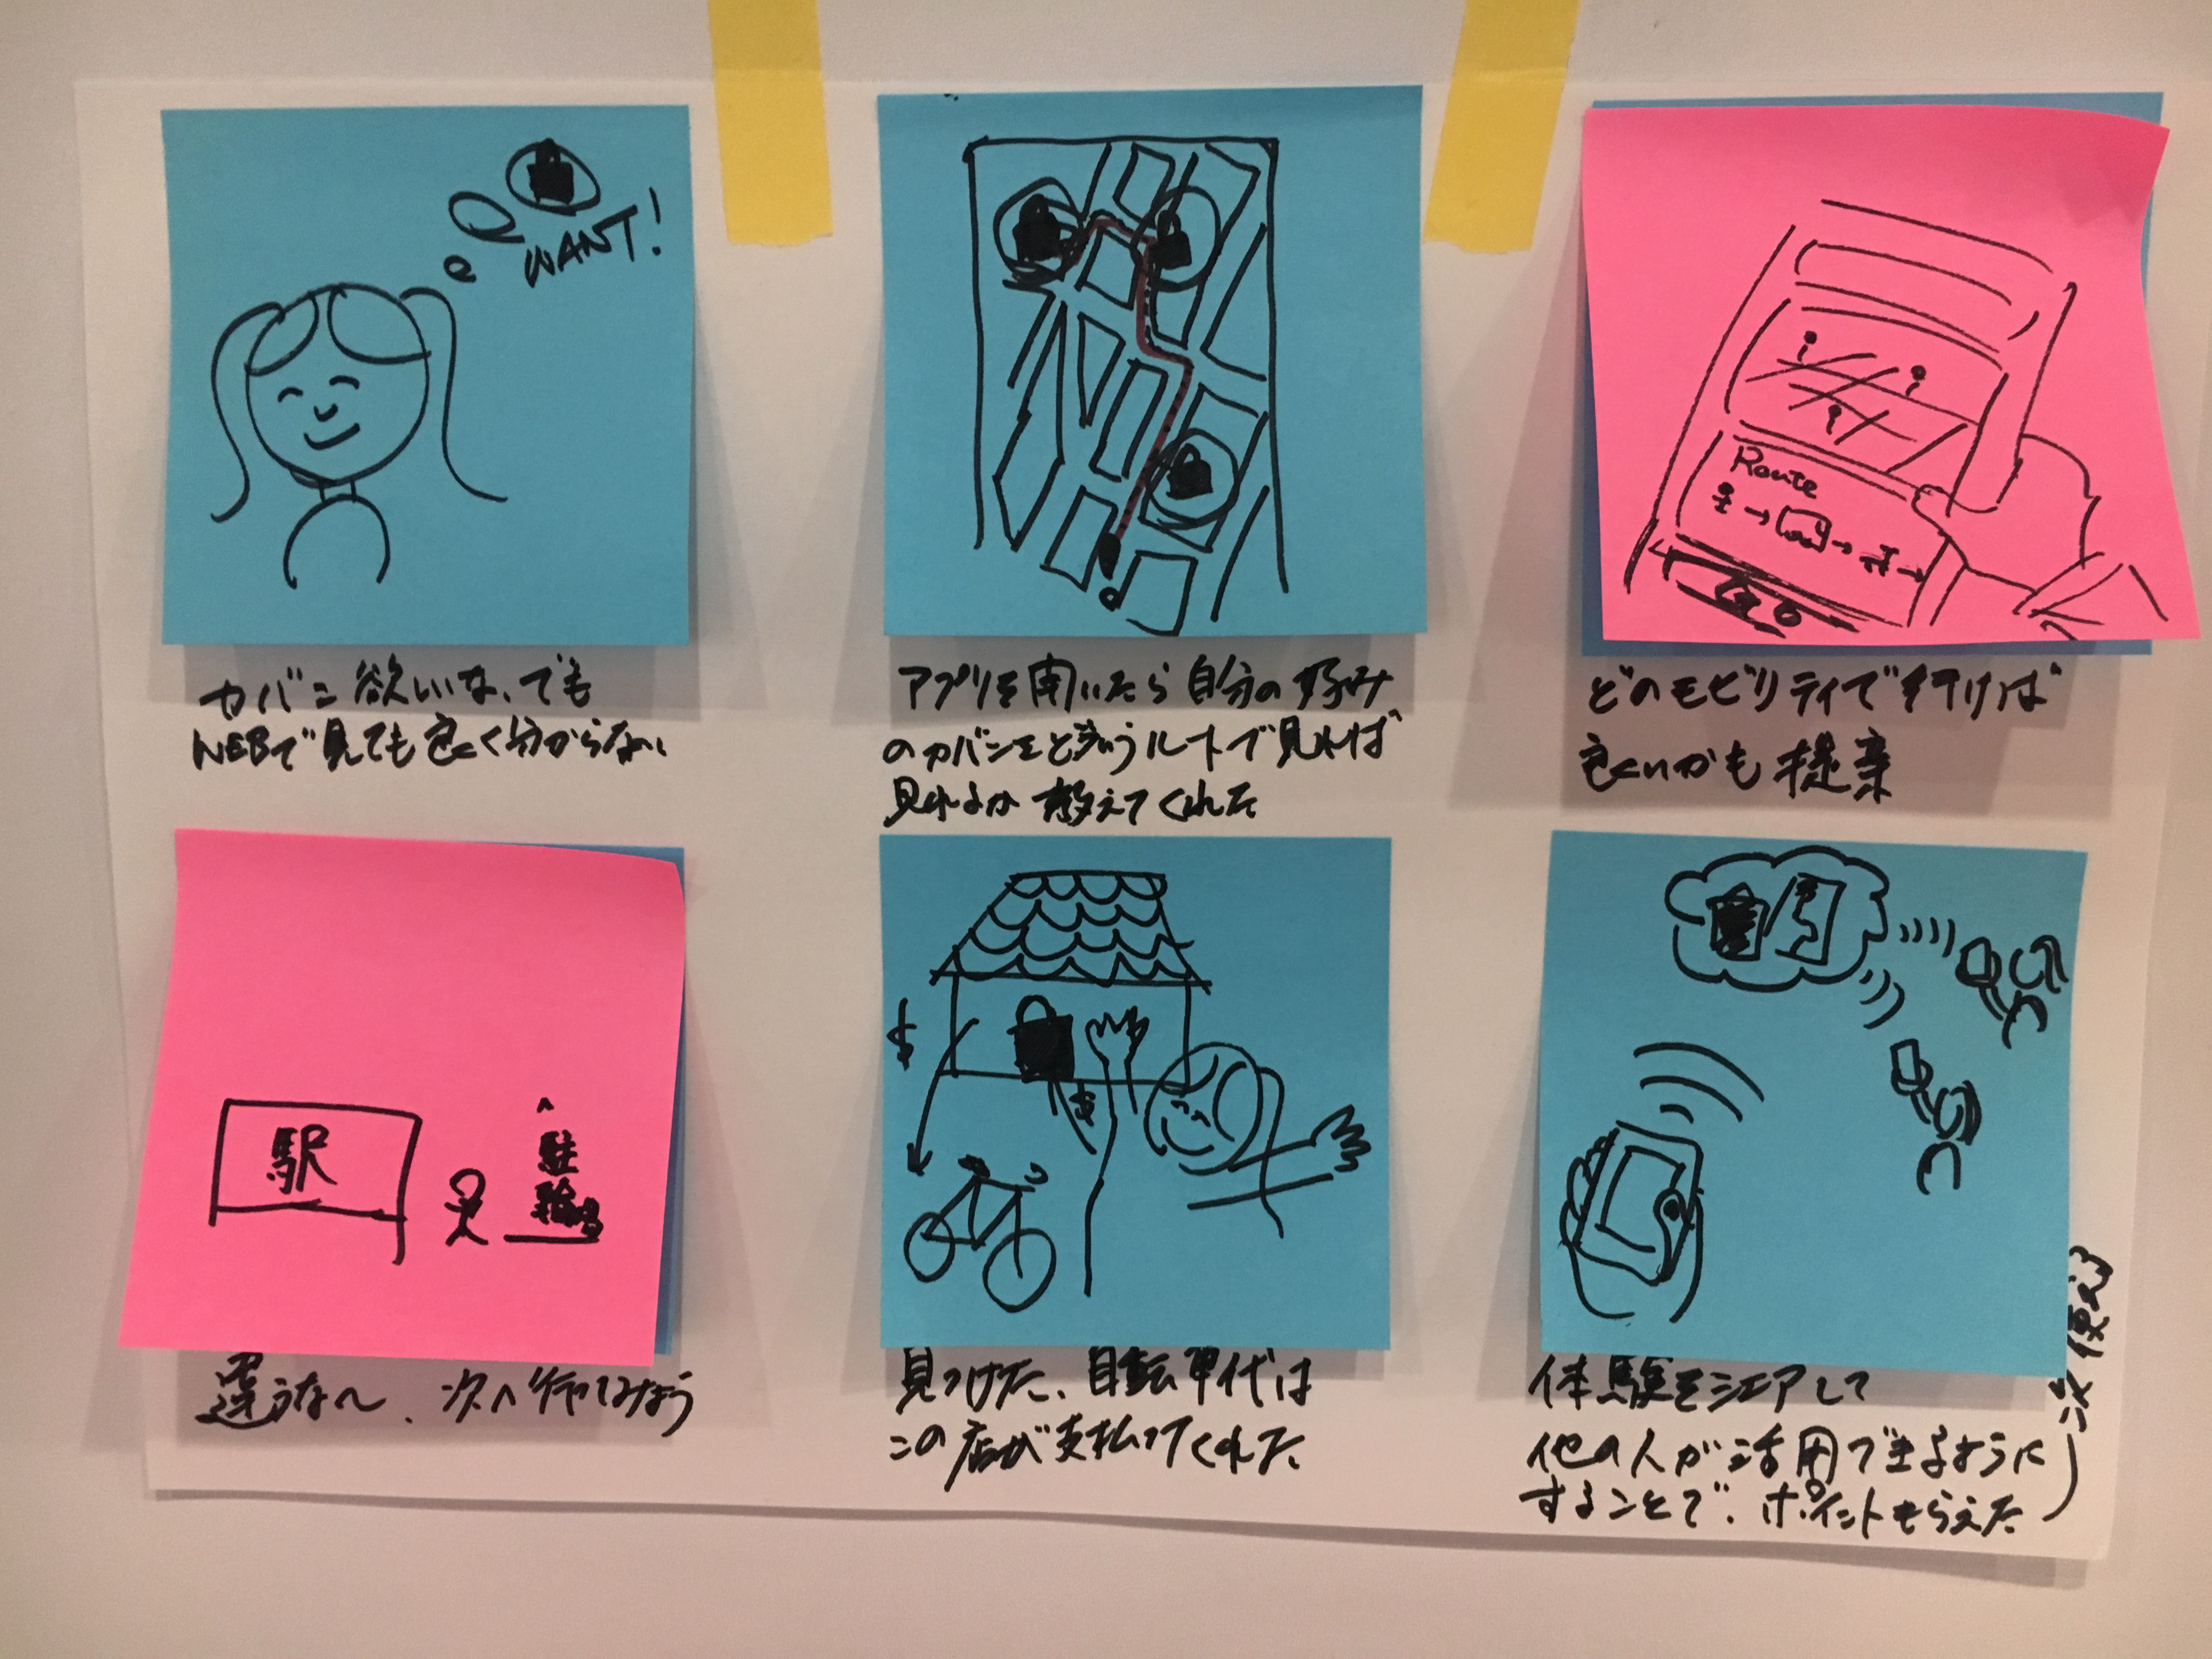 WANT!
カバン欲しいな、でも
WEBで見ても良く分からない
アプリを開いたら自分の好み
のカバンをどういうルートで見れば
見れるか教えてくれた
Route
どのモビリティで行けば
良いかも提案
駅
駐
輪場
違うな〜、次へ行ってみよう
$
$
見つけた、自転車代は
この店が支払ってくれた
体験をシェアして
他の人が活用できるように
することで、ポイントもらえた